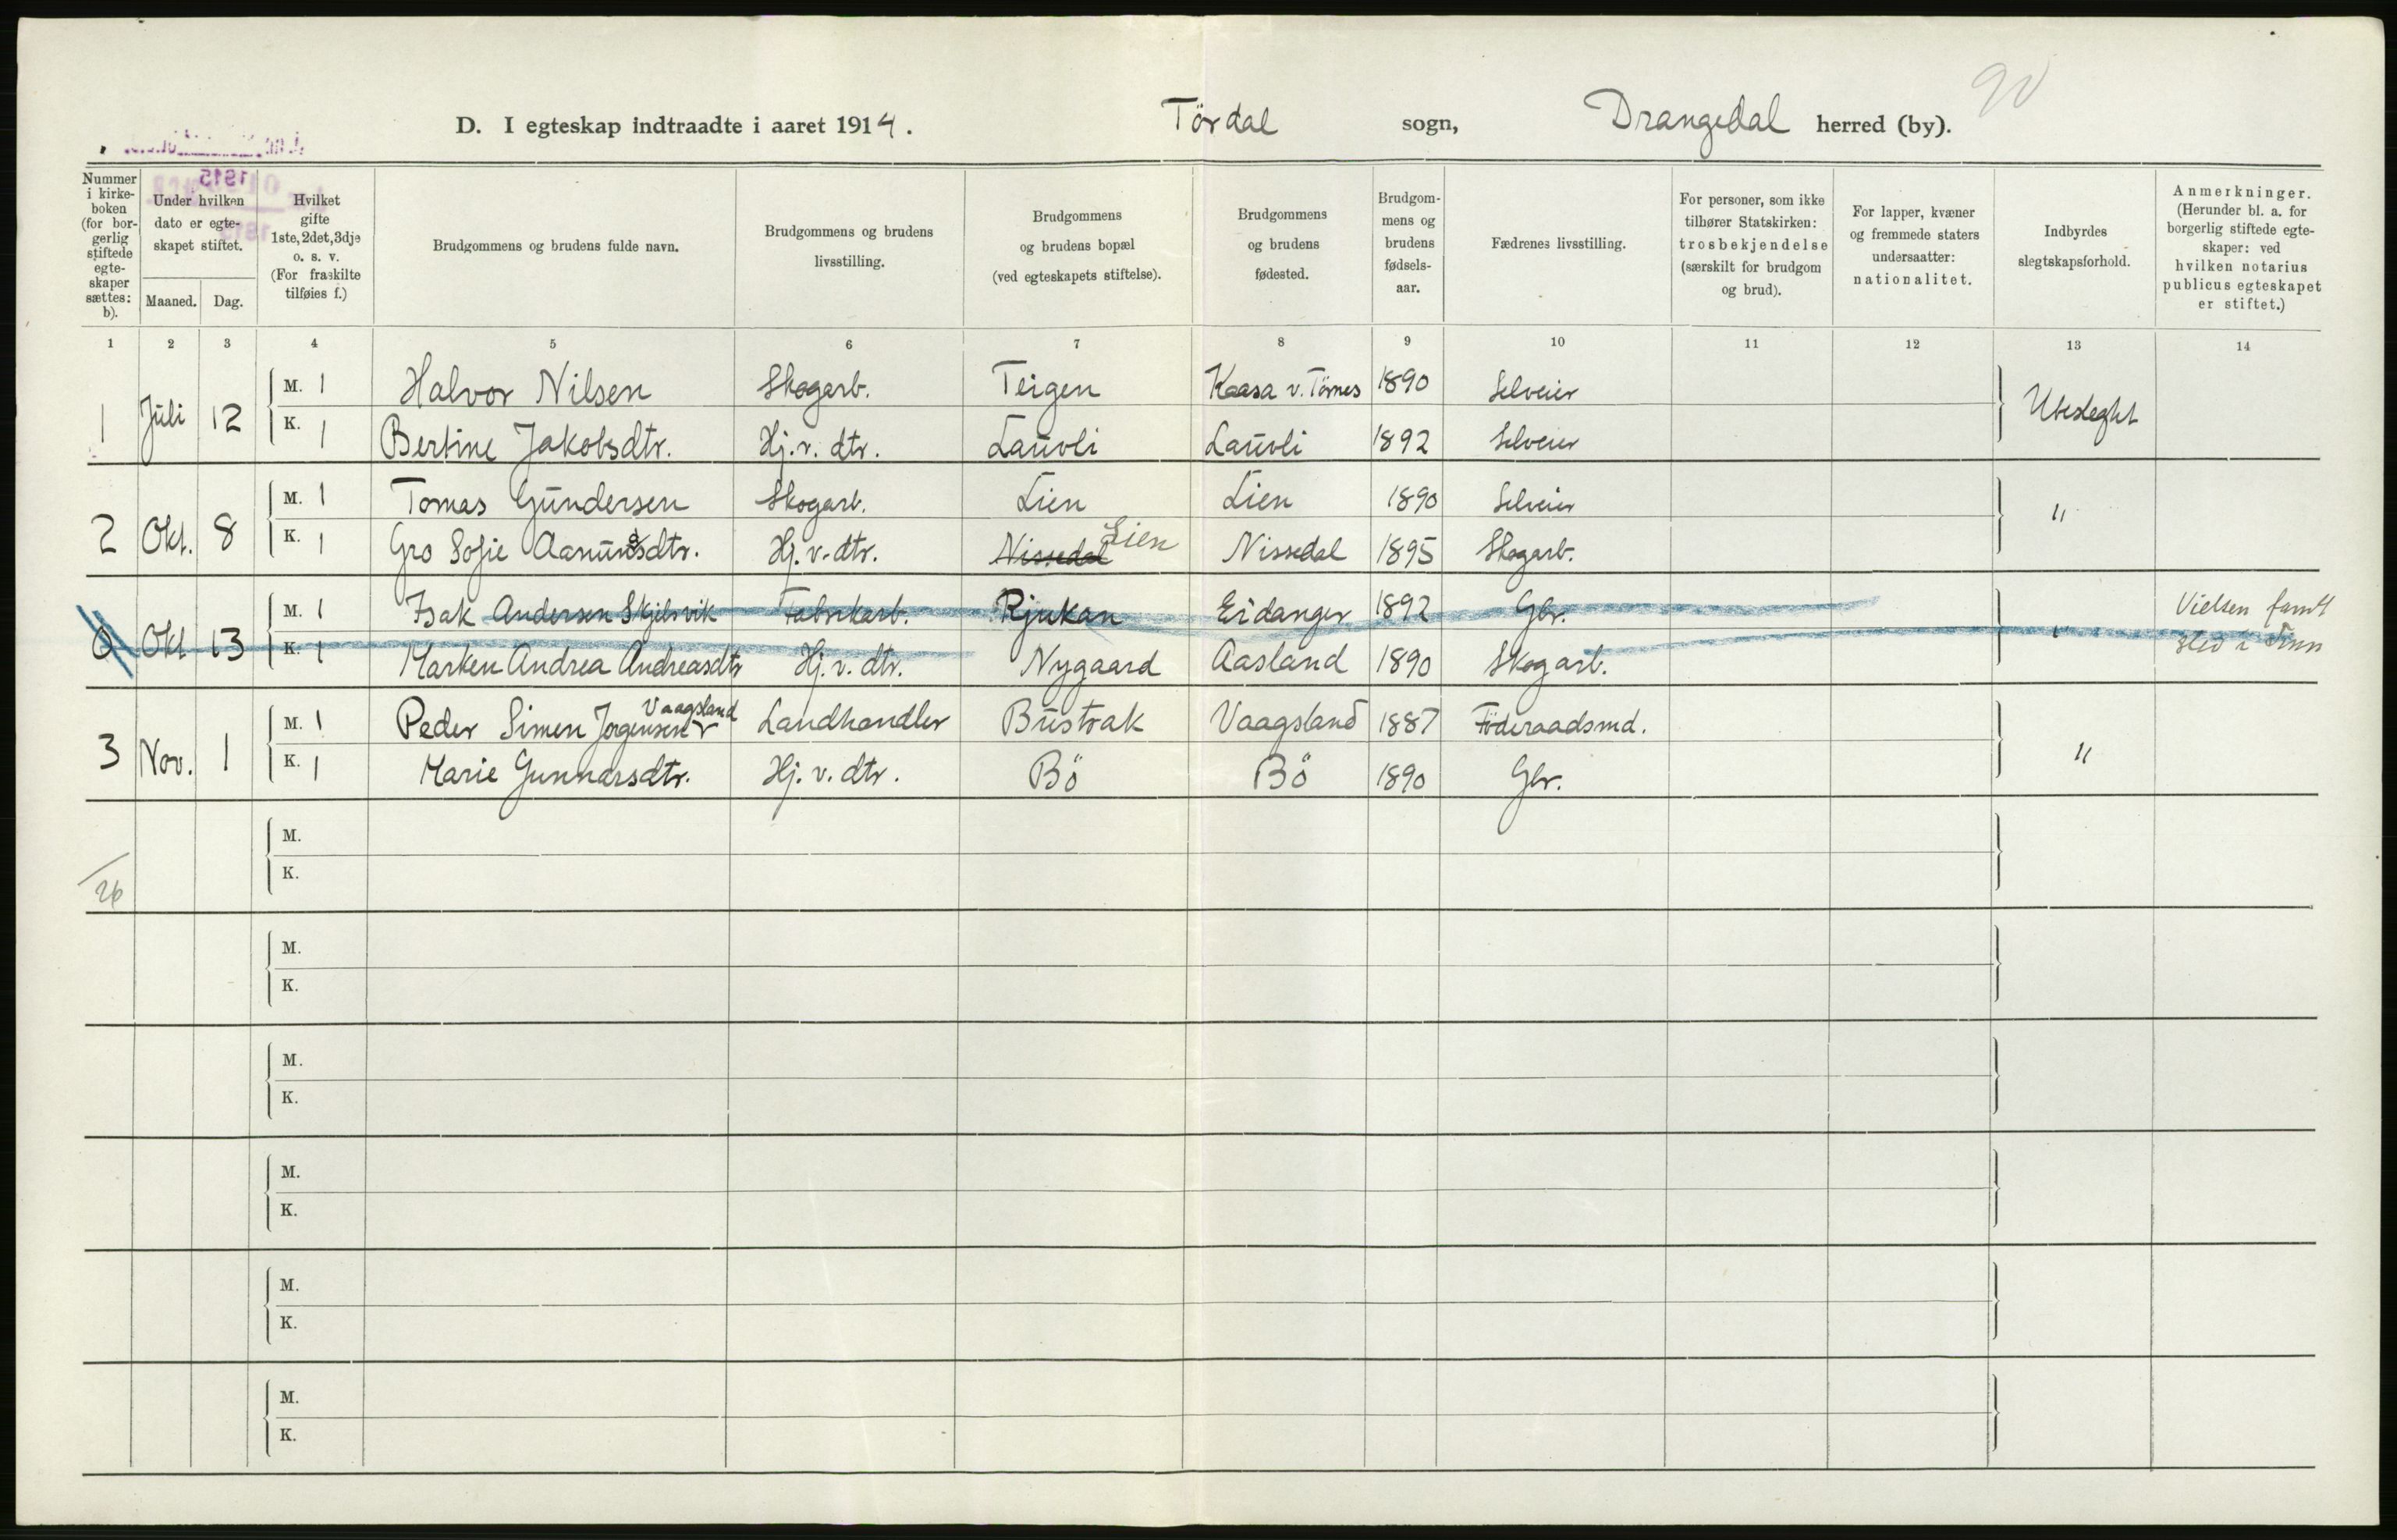 90
D. I egteskap indtraadte i aaret 1914. Tördal sogn, Drangedal herred (by).
1915
Nummer i kirke- boken (for bor- gerlig stiftede egte- skaper sættes: b).
Under hvilken dato er egte- skapet stiftet.
Maaned. Dag.
Hvilket gifte 1ste, 2det, 3dje o. s. v. (For fraskilte tilføies f.)
Brudgommens og brudens fulde navn.
Brudgommens og brudens livsstilling.
Brudgommens og brudens bopæl (ved egteskapets stiftelse).
Brudgommens og brudens fødested.
Brudgom- mens og brudens fødsels- aar.
Fædrenes livsstilling.
For personer, som ikke tilhører Statskirken: trosbekjendelse (særskilt for brudgom og brud).
For lapper, kvæner og fremmede staters undersaatter: nationalitet.
Indbyrdes slegtskapsforhold.
Anmerkninger. (Herunder bl. a. for borgerlig stiftede egte- skaper: ved hvilken notarius publicus egteskapet er stiftet.)
1 2 3 4 5 6 7 8 9 10 11 12 13 14
1 Juli 12 M. 1 Halvor Nilsen Skogarb. Teigen Kaasa v. Törnes 1890 Selveier Ubeslegtet
K. 1 Bertine Jakobsdtr. Hj. v. dtr. Lauvli Lauvli 1892 Selveier
2 Okt. 8 M. 1 Tomas Gundersen Skogarb. Lien Lien 1890 Selveier "
K. 1 Gro Sofie Aanundsdtr. Hj. v. dtr. Nissedal Lien Nissedal 1895 Skogarb.
Okt 13 M. 1 Isak Andersen Skjelsvik Fabrikarb. Rjukan Eidanger 1892 Gbr. " Vielsen fandt
K. 1 Marken Andrea Andreasdtr Hj. v. dtr. Nygaard Aasland 1890 Skogarb. sted i Tinn
3 Nov. 1 M. 1 Peder Simen Jørgensen Vaagsland Landhandler Bustrak Vaagsland 1887 Föderaadsmd. "
K. 1 Marie Gunnarsdtr. Hj. v. dtr. Bö Bö 1890 Gbr.
M.
K.
26
M.
K.
M.
K.
M.
K.
M.
K.
M.
K.